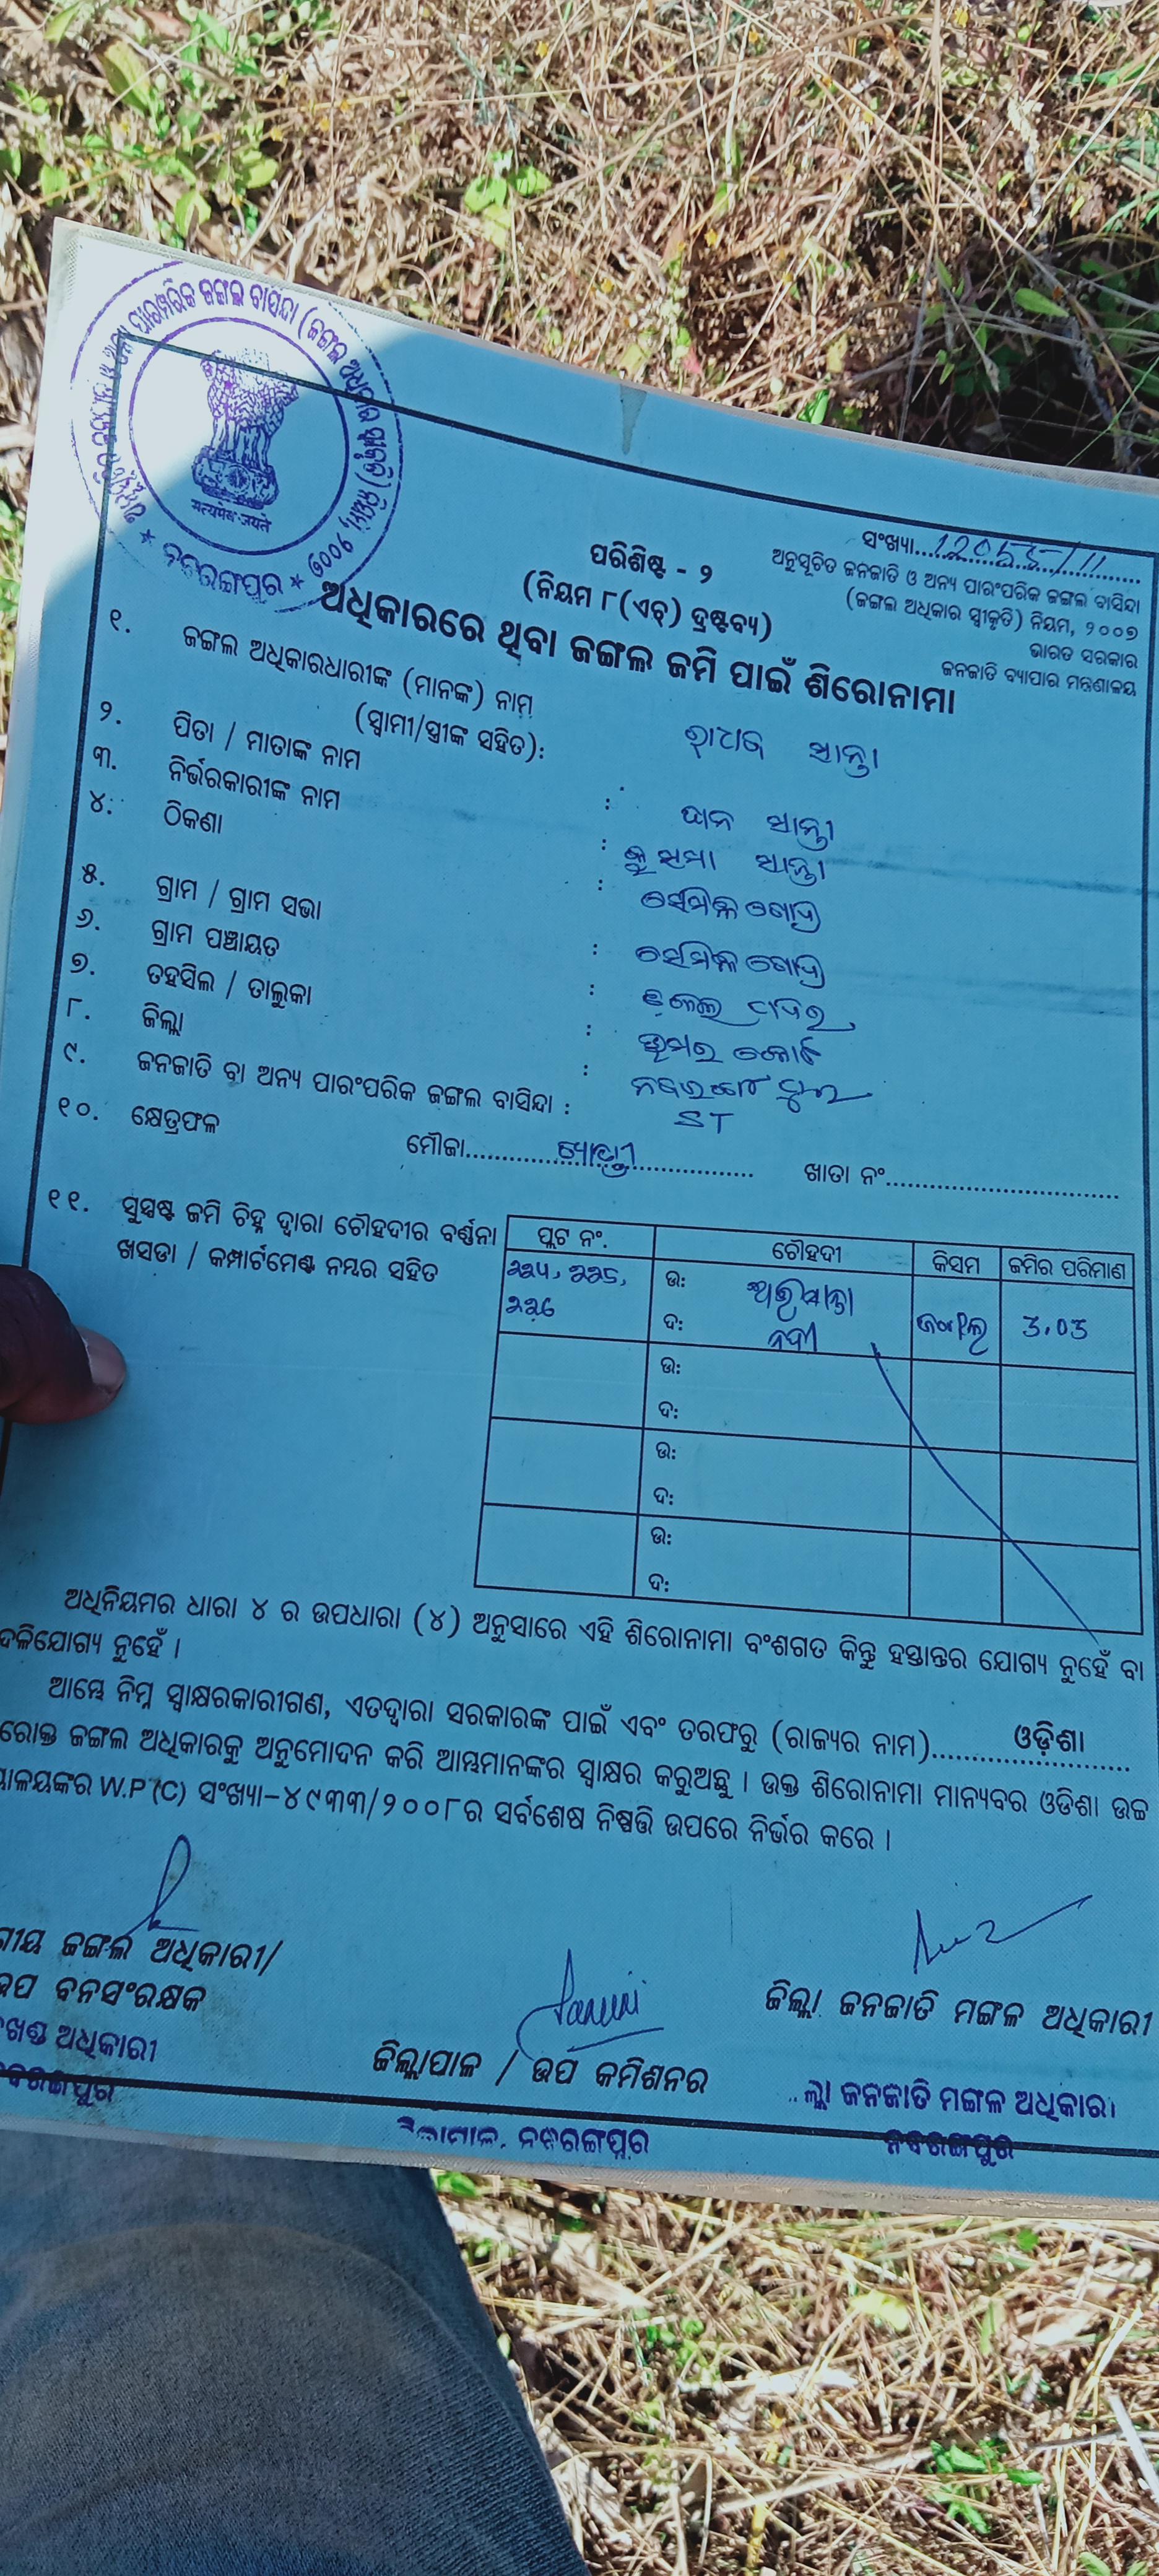 ସଂଖ୍ୟା....12053-/11
ଅନୁସୂଚିତ ଜନଜାତି ଓ ଅନ୍ୟ ପାରଂପରିକ ଜଙ୍ଗଲ ବାସିନ୍ଦା
(ଜଙ୍ଗଲ ଅଧିକାର ସ୍ୱୀକୃତି) ନିୟମ, ୨୦୦୭
ଭାରତ ସରକାର
ଜନଜାତି ବ୍ୟାପାର ମନ୍ତ୍ରଣାଳୟ
सत्यमेव जयते
ନବରଙ୍ଗପୁର
ପରିଶିଷ୍ଟ - ୨
(ନିୟମ ୮(ଏଚ୍) ଦ୍ରଷ୍ଟବ୍ୟ)
ଅଧିକାରରେ ଥିବା ଜଙ୍ଗଲ ଜମି ପାଇଁ ଶିରୋନାମା
୧. ଜଙ୍ଗଲ ଅଧିକାରଧାରୀଙ୍କ (ମାନଙ୍କ) ନାମ
(ସ୍ୱାମୀ/ସ୍ତ୍ରୀଙ୍କ ସହିତ): ସାନ୍ତା
୨. ପିତା / ମାତାଙ୍କ ନାମ : ସାନ୍ତା
୩. ନିର୍ଭରକାରୀଙ୍କ ନାମ : କୁସମା ସାନ୍ତା
୪. ଠିକଣା :
୫. ଗ୍ରାମ / ଗ୍ରାମ ସଭା :
୬. ଗ୍ରାମ ପଞ୍ଚାୟତ :
୭. ତହସିଲ / ତାଲୁକା : ଉମରକୋଟ
୮. ଜିଲ୍ଲା : ନବରଙ୍ଗପୁର
୯. ଜନଜାତି ବା ଅନ୍ୟ ପାରଂପରିକ ଜଙ୍ଗଲ ବାସିନ୍ଦା : ST
୧୦. କ୍ଷେତ୍ରଫଳ ମୌଜା.... ଖାତା ନଂ....
୧୧. ସୁସ୍ପଷ୍ଟ ଜମି ଚିହ୍ନ ଦ୍ୱାରା ଚୌହଦୀର ବର୍ଣ୍ଣନା
ଖସଡା / କମ୍ପାର୍ଟମେଣ୍ଟ ନମ୍ବର ସହିତ
ପ୍ଲଟ ନଂ. ଚୌହଦୀ କିସମ ଜମିର ପରିମାଣ
ଉ: ସାନ୍ତା
ଦ: ନଦୀ ଜଙ୍ଗଲ 3.03
ଉ:
ଦ:
ଉ:
ଦ:
ଉ:
ଦ:
ଅଧିନିୟମର ଧାରା ୪ ର ଉପଧାରା (୪) ଅନୁସାରେ ଏହି ଶିରୋନାମା ବଂଶଗତ କିନ୍ତୁ ହସ୍ତାନ୍ତର ଯୋଗ୍ୟ ନୁହେଁ ବା
ଦଳିଯୋଗ୍ୟ ନୁହେଁ ।
ଆମ୍ଭେ ନିମ୍ନ ସ୍ୱାକ୍ଷରକାରୀଗଣ, ଏତଦ୍ୱାରା ସରକାରଙ୍କ ପାଇଁ ଏବଂ ତରଫରୁ (ରାଜ୍ୟର ନାମ)....ଓଡ଼ିଶା
ରୋକ୍ତ ଜଙ୍ଗଲ ଅଧିକାରକୁ ଅନୁମୋଦନ କରି ଆମ୍ଭମାନଙ୍କର ସ୍ୱାକ୍ଷର କରୁଅଛୁ । ଉକ୍ତ ଶିରୋନାମା ମାନ୍ୟବର ଓଡିଶା ଉଚ୍ଚ
ୟାଳୟଙ୍କର W.P (C) ସଂଖ୍ୟା-୪୯୩୩/୨୦୦୮ର ସର୍ବଶେଷ ନିଷ୍ପତ୍ତି ଉପରେ ନିର୍ଭର କରେ ।
ଗୀୟ ଜଙ୍ଗଲ ଅଧିକାରୀ/
ଉପ ବନସଂରକ୍ଷକ
ଖଣ୍ଡ ଅଧିକାରୀ
ବରଙ୍ଗପୁର
ଜିଲ୍ଲାପାଳ / ଉପ କମିଶନର
ଜିଲ୍ଲାପାଳ, ନବରଙ୍ଗପୁର
ଜିଲ୍ଲା ଜନଜାତି ମଙ୍ଗଳ ଅଧିକାରୀ
ଲ୍ଲା ଜନଜାତି ମଙ୍ଗଳ ଅଧିକାରୀ
ନବରଙ୍ଗପୁର